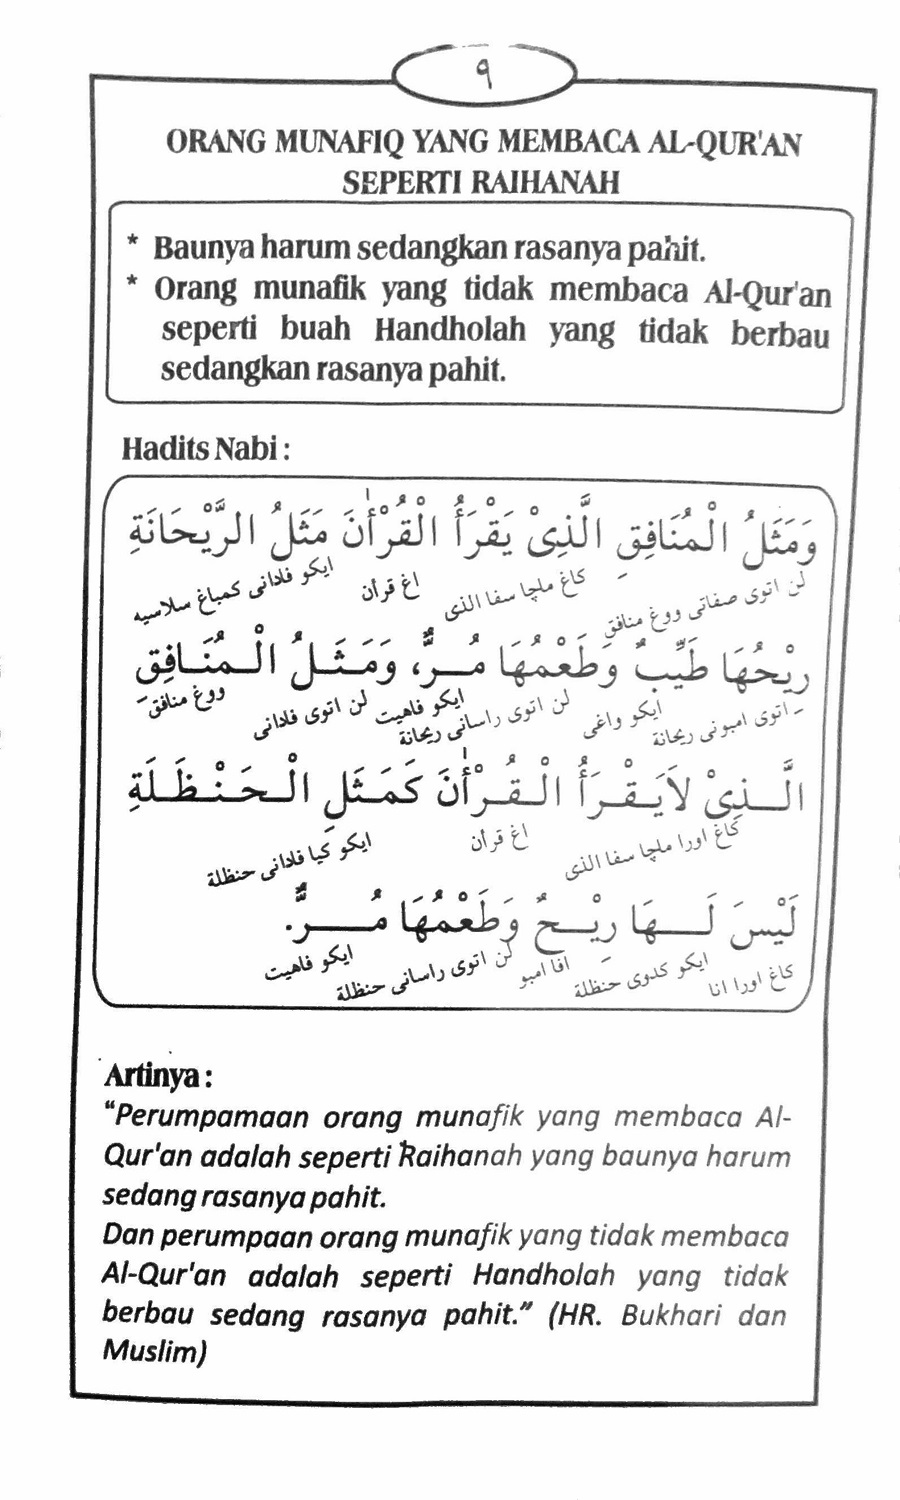 ٩
ORANG MUNAFIQ YANG MEMBACA AL-QUR'AN
SEPERTI RAIHANAH
* Baunya harum sedangkan rasanya pahit.
* Orang munafik yang tidak membaca Al-Qur'an
seperti buah Handholah yang tidak berbau
sedangkan rasanya pahit.
Hadits Nabi :
وَمَثَلُ الْمُنَافِقِ الَّذِيْ يَقْرَأُ الْقُرْأٰنَ مَثَلُ الرَّيْحَانَةِ
لن اتوى صفاتى ووغ منافق كاغ ملچا سفا الذى اغ قرأن ايكو فادانى كمباغ سلاسيه
رِيْحُهَا طَيِّبٌ وَطَعْمُهَا مُرٌّ، وَمَثَلُ الْمُنَافِقِ
اتوى امبونى ريحانة ايكو واغى لن اتوى راسانى ريحانة ايكو فاهيت لن اتوى فادانى ووغ منافق
الَّذِيْ لاَيَقْرَأُ الْقُرْأٰنَ كَمَثَلِ الْحَنْظَلَةِ
كاغ اورا ملچا سفا الذى اغ قرأن ايكو كيا فادانى حنظلة
لَيْسَ لَهَا رِيْحٌ وَطَعْمُهَا مُرٌّ.
كاغ اورا انا ايكو كدوى حنظلة افا امبو لن اتوى راسانى حنظلة ايكو فاهيت
Artinya :
“Perumpamaan orang munafik yang membaca Al-
Qur'an adalah seperti Raihanah yang baunya harum
sedang rasanya pahit.
Dan perumpaan orang munafik yang tidak membaca
Al-Qur'an adalah seperti Handholah yang tidak
berbau sedang rasanya pahit.” (HR. Bukhari dan
Muslim)